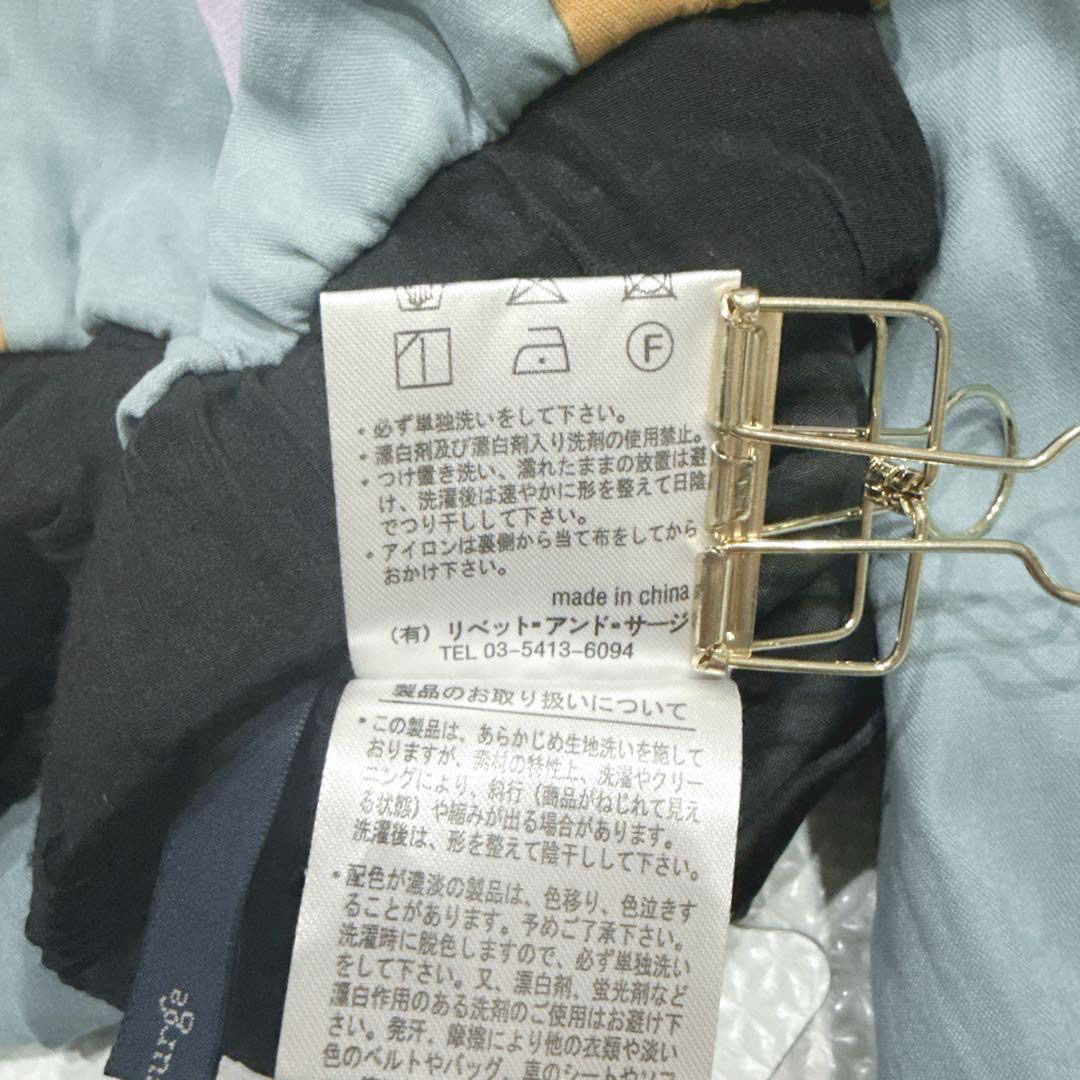 F
・必ず単独洗いをして下さい。
・漂白剤及び漂白剤入り洗剤の使用禁止。
・つけ置き洗い、濡れたままの放置は避
け、洗濯後は速やかに形を整えて日陰
でつり干しして下さい。
・アイロンは裏側から当て布をしてから
おかけ下さい。
made in china
(有) リベット=アンド=サージ
TEL 03-5413-6094
製品のお取り扱いについて
・この製品は、あらかじめ生地洗いを施して
おりますが、素材の特性上、洗濯やクリー
ニングにより、斜行(商品がねじれて見え
る状態)や縮みが出る場合があります。
洗濯後は、形を整えて陰干しして下さい。
・配色が濃淡の製品は、色移り、色泣きす
ることがあります。予めご了承下さい。
洗濯時に脱色しますので、必ず単独洗い
をして下さい。又、漂白剤、蛍光剤など
漂白作用のある洗剤のご使用はお避け下
さい。発汗、摩擦により他の衣類や淡い
色のベルトやバッグ、車のシートやソフ
surge